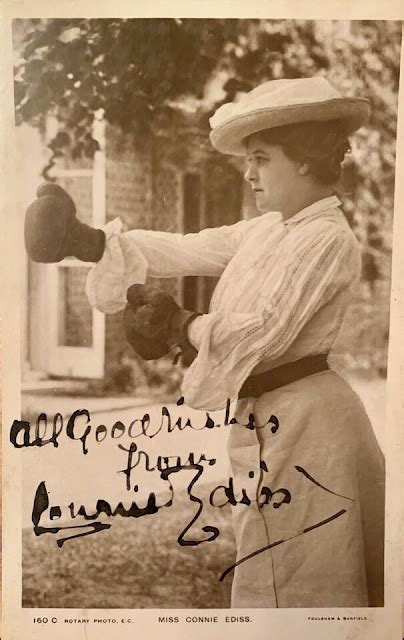 All Good wishes
from
Connie Ediss
160 C ROTARY PHOTO, E.C. MISS CONNIE EDISS. FOULSHAM & BANFIELD.